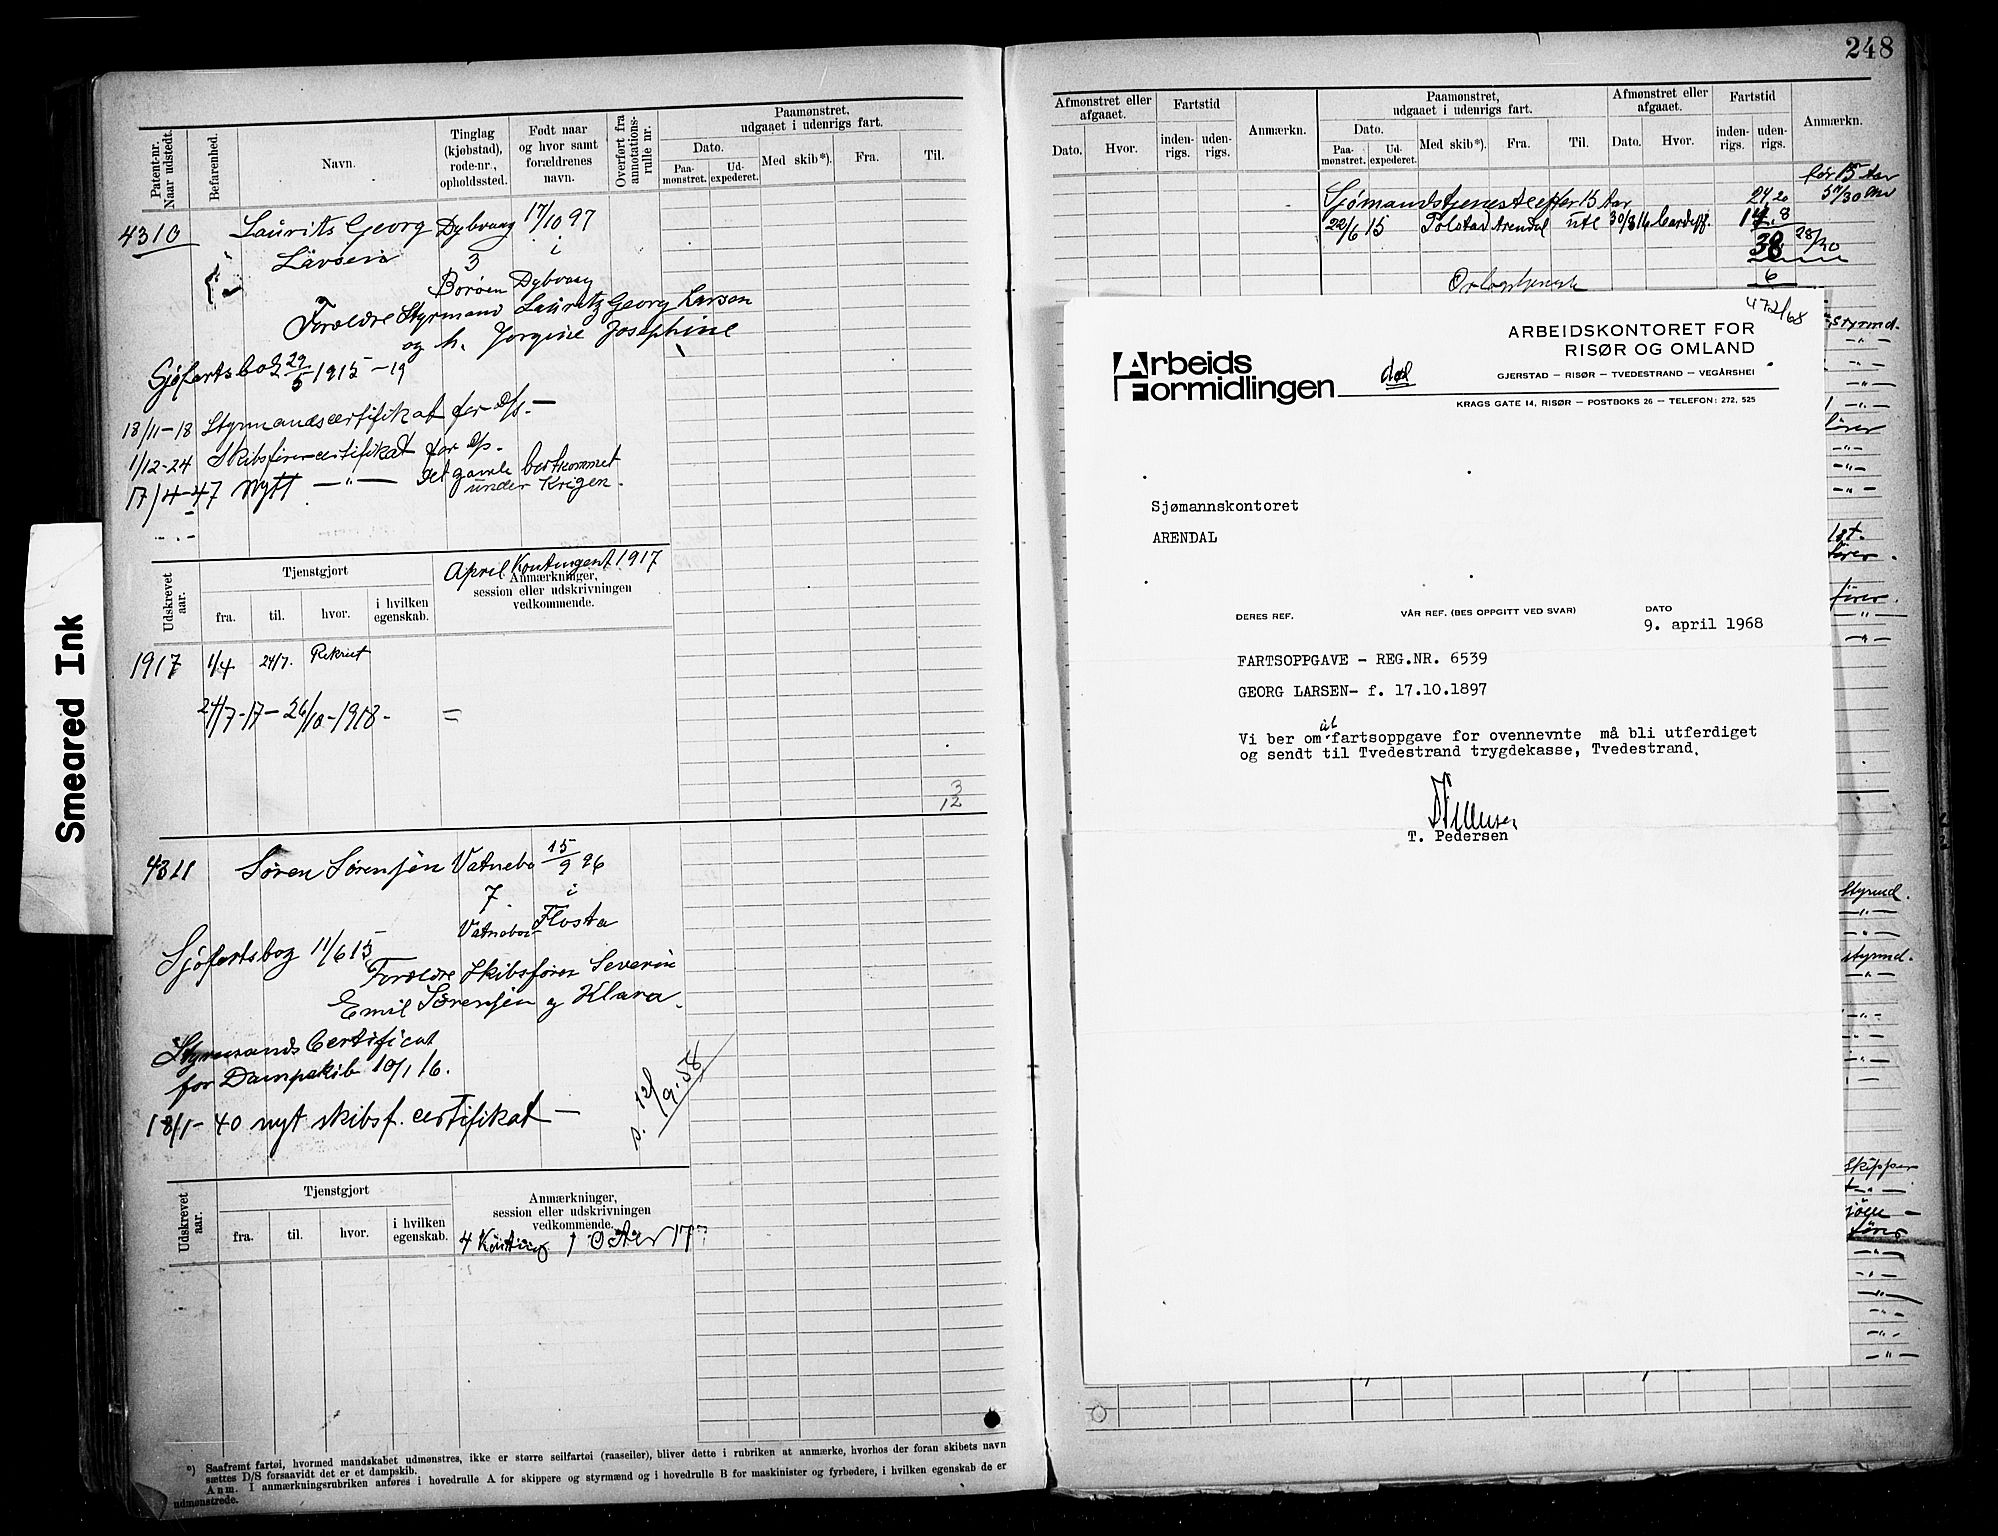 248
Smeared Ink
Patent-nr.
Naar udstedt.
Befarenhed.
Navn.
Tinglag
(kjøbstad),
rode-nr.,
opholdssted.
Født naar
og hvor samt
forældrenes
navn.
Overført fra
annotations-
rulle nr.
Paamønstret,
udgaaet i udenrigs fart.
Dato.
Paa-
mønstret.
Ud-
expederet.
Med skib*).
Fra.
Til.
4310
Laurits Georg Dybvaag 17/10 97
Larsen 3 i
Borøen Dybvaag
Forældre Styrmand Lauritz Georg Larsen
og h. Jorgine Josephine
Sjøfartsbog 29/5 1915 - 19
18/11-18 Styrmandscertifikat for D/s. —
1/12-24 Skibsførercertifikat for D/s.
17/4-47 Nytt —"— Det gamle bortkommet
under Krigen.
Udskrevet
aar.
Tjenstgjort
fra.
til.
hvor.
i hvilken
egenskab.
April Kontingent 1917
Anmærkninger,
session eller udskrivningen
vedkommende.
1917 1/4 24/7. Rekrut
24/7-17 - 26/10-1918 - =
3
12
4311
Søren Sørensen Vatnebo 15/9 96
7. i
Vatnebo Flosta
Sjøfartsbog 11/6 15
Forældre Skibsfører Severin
Emil Sørensen og Klara.
Styrmands Certificat
for Dampskib 10/1 16.
18/1-40 nyt skibsf. certifikat —
p. 12/9-58
Udskrevet
aar.
Tjenstgjort
fra.
til.
hvor.
i hvilken
egenskab.
Anmærkninger,
session eller udskrivningen
vedkommende.
4 Konting 1 Okter 17
*) Saafremt fartøi, hvormed mandskabet udmønstres, ikke er større seilfartøi (raaseiler), bliver dette i rubriken at anmærke, hvorhos der foran skibets navn
sættes D/S forsaavidt det er et dampskib.
Anm. I anmærkningsrubriken anføres i hovedrulle A for skippere og styrmænd og i hovedrulle B for maskinister og fyrbødere, i hvilken egenskab de er
udmønstrede.
Afmønstret eller
afgaaet.
Dato.
Hvor.
Fartstid
inden-
rigs.
uden-
rigs.
Anmærkn.
Paamønstret,
udgaaet i udenrigs fart.
Dato.
Paa-
mønstret.
Ud-
expederet.
Med skib*).
Fra.
Til.
Afmønstret eller
afgaaet.
Dato.
Hvor.
Fartstid
inden-
rigs.
uden-
rigs.
Anmærkn.
før 15 Aar
Sjømandstjeneste efter 15 Aar 24 20
22/6 15 Tolstad Arendal utl 30/8 16 Cardiff. 14.8
38 28/30
6
472/68
Arbeids
Formidlingen
ARBEIDSKONTORET FOR
RISØR OG OMLAND
GJERSTAD — RISØR — TVEDESTRAND — VEGÅRSHEI
KRAGS GATE 14, RISØR — POSTBOKS 26 — TELEFON: 272, 525
Sjømannskontoret
ARENDAL
DERES REF.
VÅR REF. (BES OPPGITT VED SVAR)
DATO
9. april 1968
FARTSOPPGAVE - REG.NR. 6539
GEORG LARSEN- f. 17.10.1897
at
Vi ber om fartsoppgave for ovennevnte må bli utferdiget
og sendt til Tvedestrand trygdekasse, Tvedestrand.
T. Pedersen
Styrmd.
—"—
fører.
—"—
Styrmd.
—"—
styrmd.
—"—
Skipper
fører
—"—